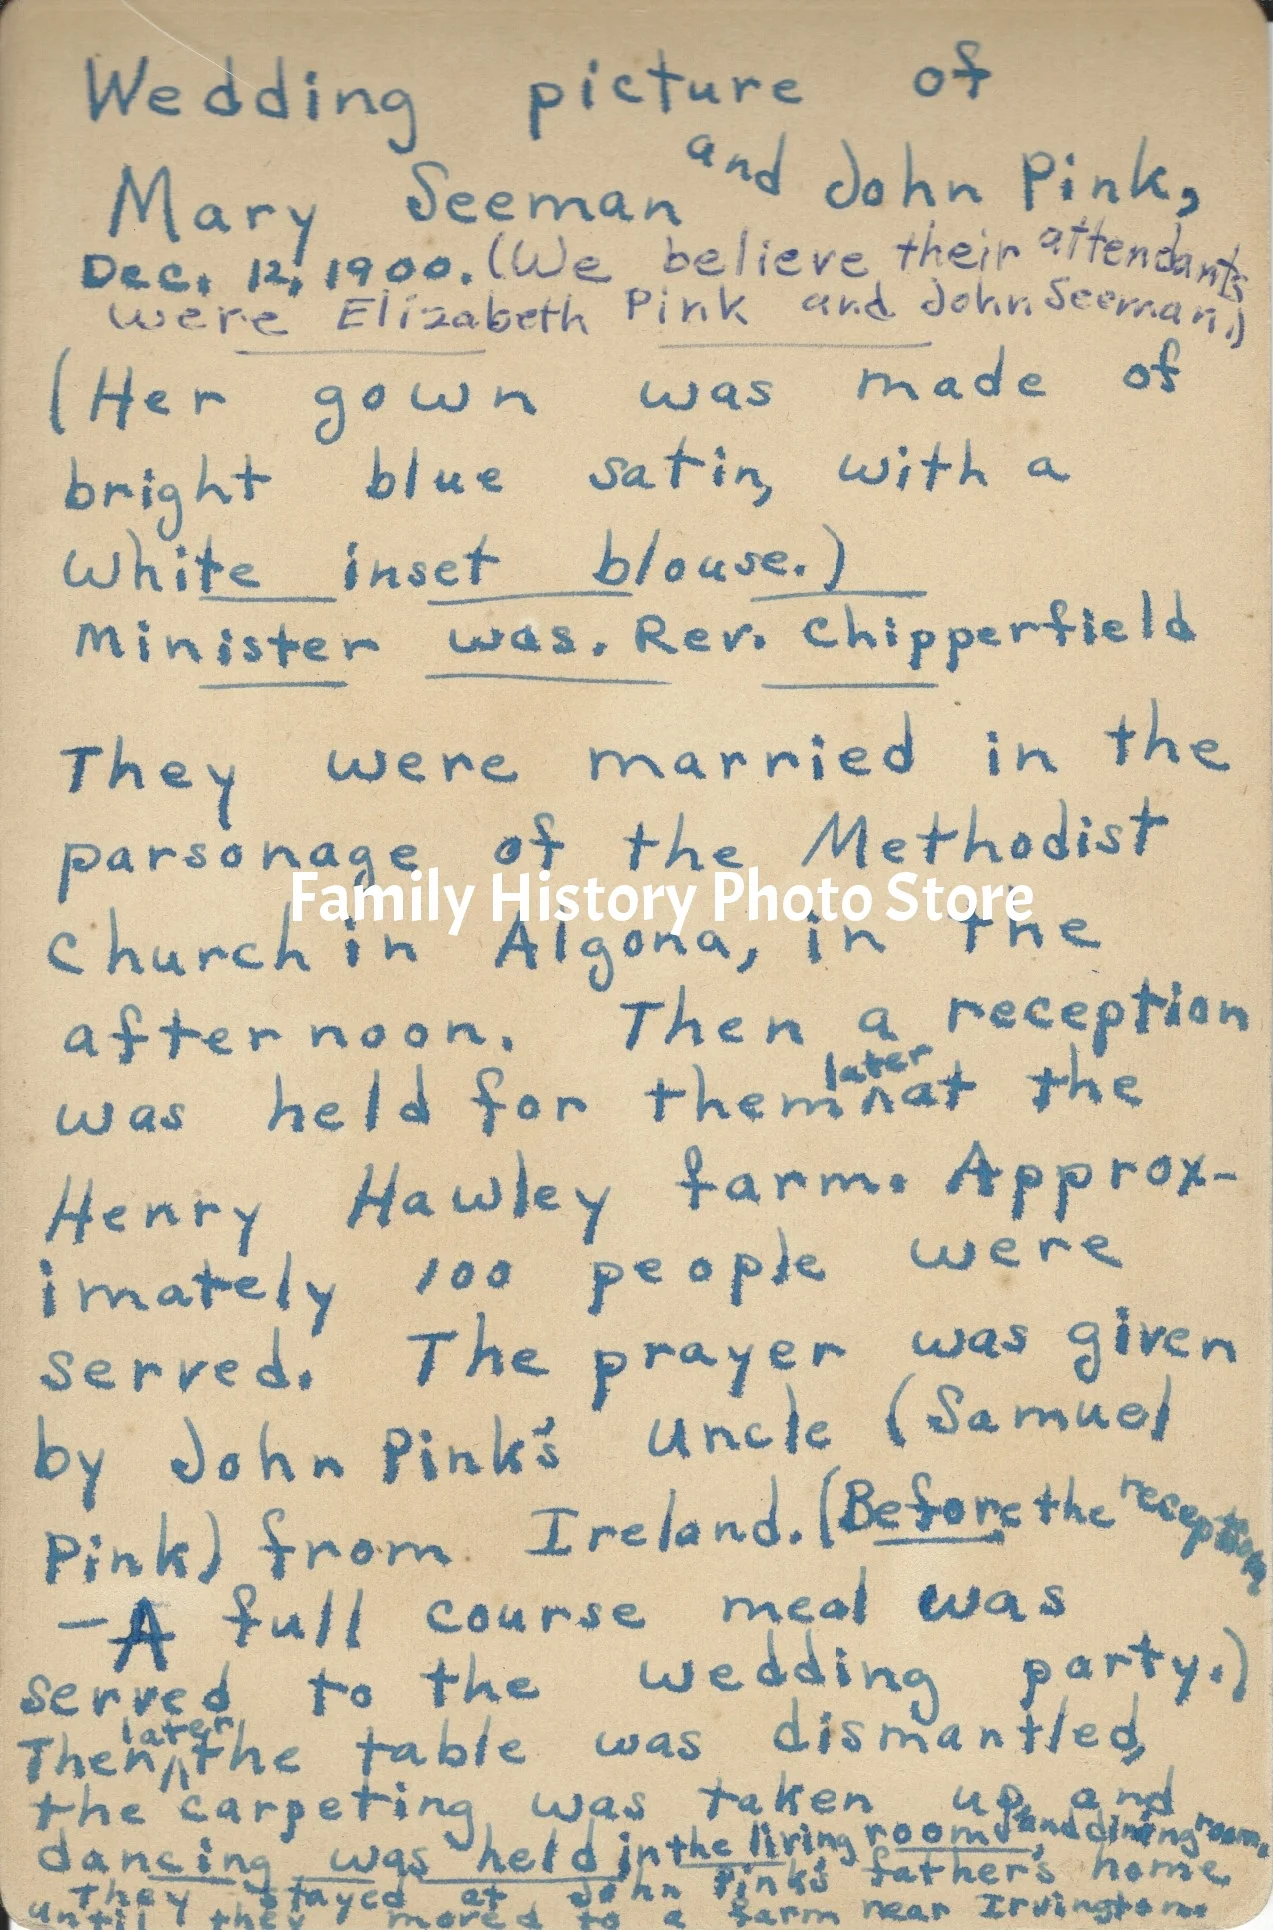 Wedding picture of
Mary Seeman and John Pink,
Dec. 12, 1900. (We believe their attendants
were Elizabeth Pink and John Seeman.)
(Her gown was made of
bright blue satin, with a
white inset blouse.)
Minister was. Rev. Chipperfield
They were married in the
parsonage of the Methodist
Family History Photo Store
Church in Algona, in the
afternoon. Then a reception
was held for them later at the
Henry Hawley farm. Approx-
imately 100 people were
served. The prayer was given
by John Pink's Uncle (Samuel
Pink) from Ireland. (Before the reception
- A full course meal was
served to the wedding party.)
Then later the table was dismantled,
the carpeting was taken up and
dancing was held in the living room and dining room.
They stayed at John Pink's father's home
until they moved to a farm near Irvington.